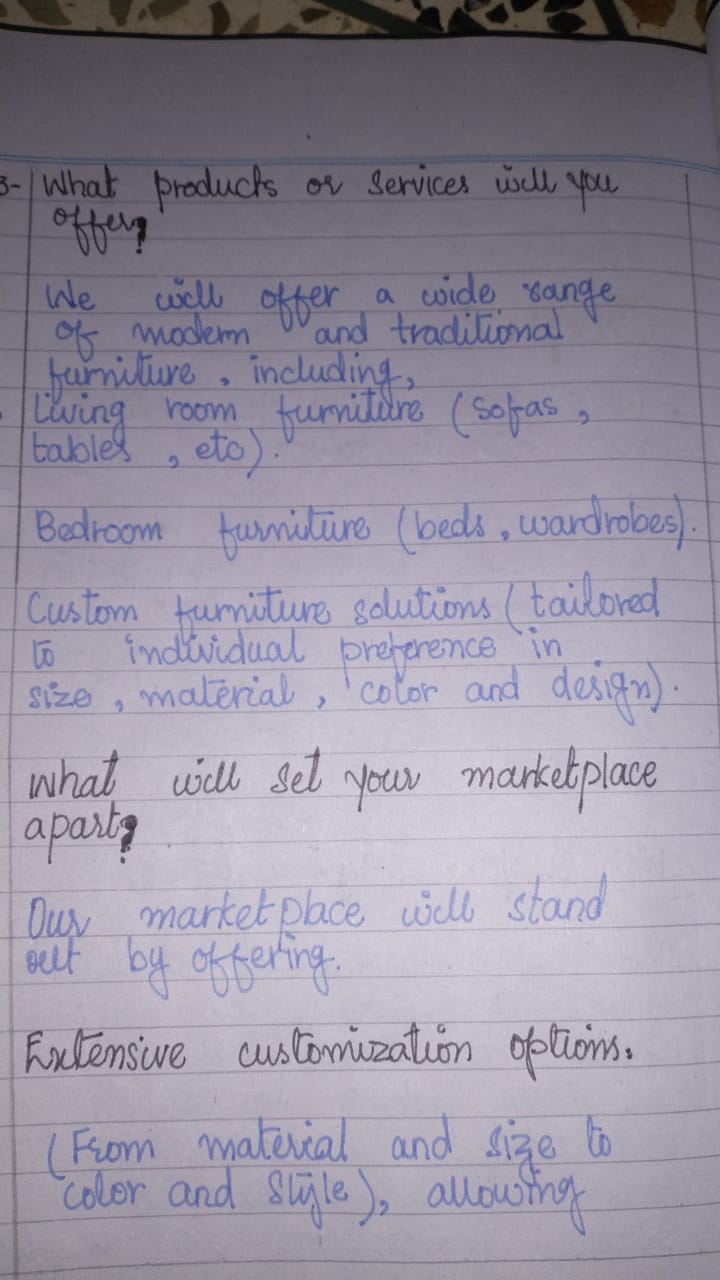 3- What products or services will you
offer?
We will offer a wide range
of modern and traditional
furniture, including,
Living room furniture (sofas,
tables, etc).
Bedroom furniture (beds, wardrobes).
Custom furniture solutions (tailored
to individual preference in
size, material, color and design).
What will set your marketplace
apart?
Our marketplace will stand
out by offering.
Extensive customization options.
(From material and size to
color and style), allowing